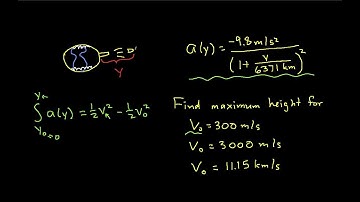 y
a(y) = -9.8 m/s² / (1 + y/6371 km)²
∫ a(y) = ½ v² - ½ v₀²
y₀=0
Find maximum height for
V₀ = 300 m/s
V₀ = 3000 m/s
V₀ = 11.15 km/s